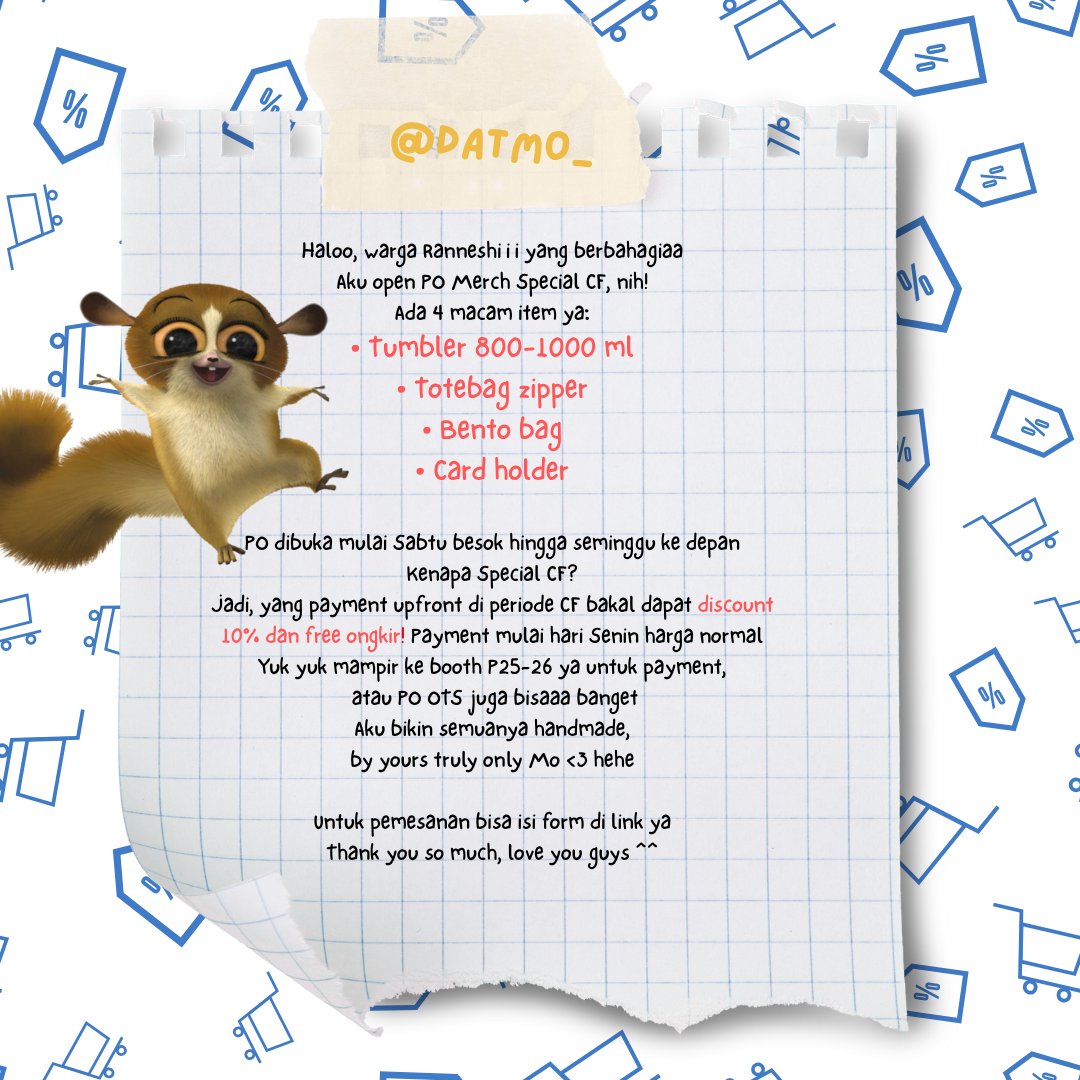 @DATMO_
Haloo, warga Ranneshiii yang berbahagiaa
Aku open PO Merch Special CF, nih!
Ada 4 macam item ya:
• Tumbler 800-1000 ml
• Totebag zipper
• Bento bag
• Card holder
PO dibuka mulai Sabtu besok hingga seminggu ke depan
Kenapa Special CF?
Jadi, yang payment upfront di periode CF bakal dapat discount
10% dan free ongkir! Payment mulai hari Senin harga normal
Yuk yuk mampir ke booth P25-26 ya untuk payment,
atau PO OTS juga bisaaa banget
Aku bikin semuanya handmade,
by yours truly only Mo <3 hehe
Untuk pemesanan bisa isi form di link ya
Thank you so much, love you guys ^^